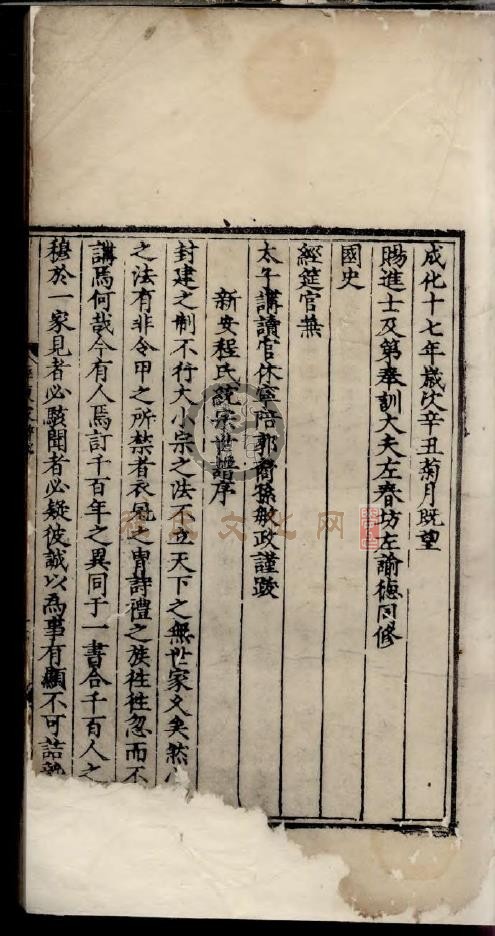 成化十七年歲次辛丑菊月既望
賜進士及第奉訓大夫左春坊左諭德同修
國史
經筵官兼
太子講讀官休寧陪郭裔孫敏政謹跋
新安程氏統宗世譜序
封建之制不行大小宗之法不立天下之無世家久矣然
之法有非令甲之所禁者衣冠之胄詩禮之族徃徃忽而不
講焉何哉今有人焉訂千百年之異同于一書合千百人之
穆於一家見者必駭聞者必疑彼誠以為事有顯不可詰